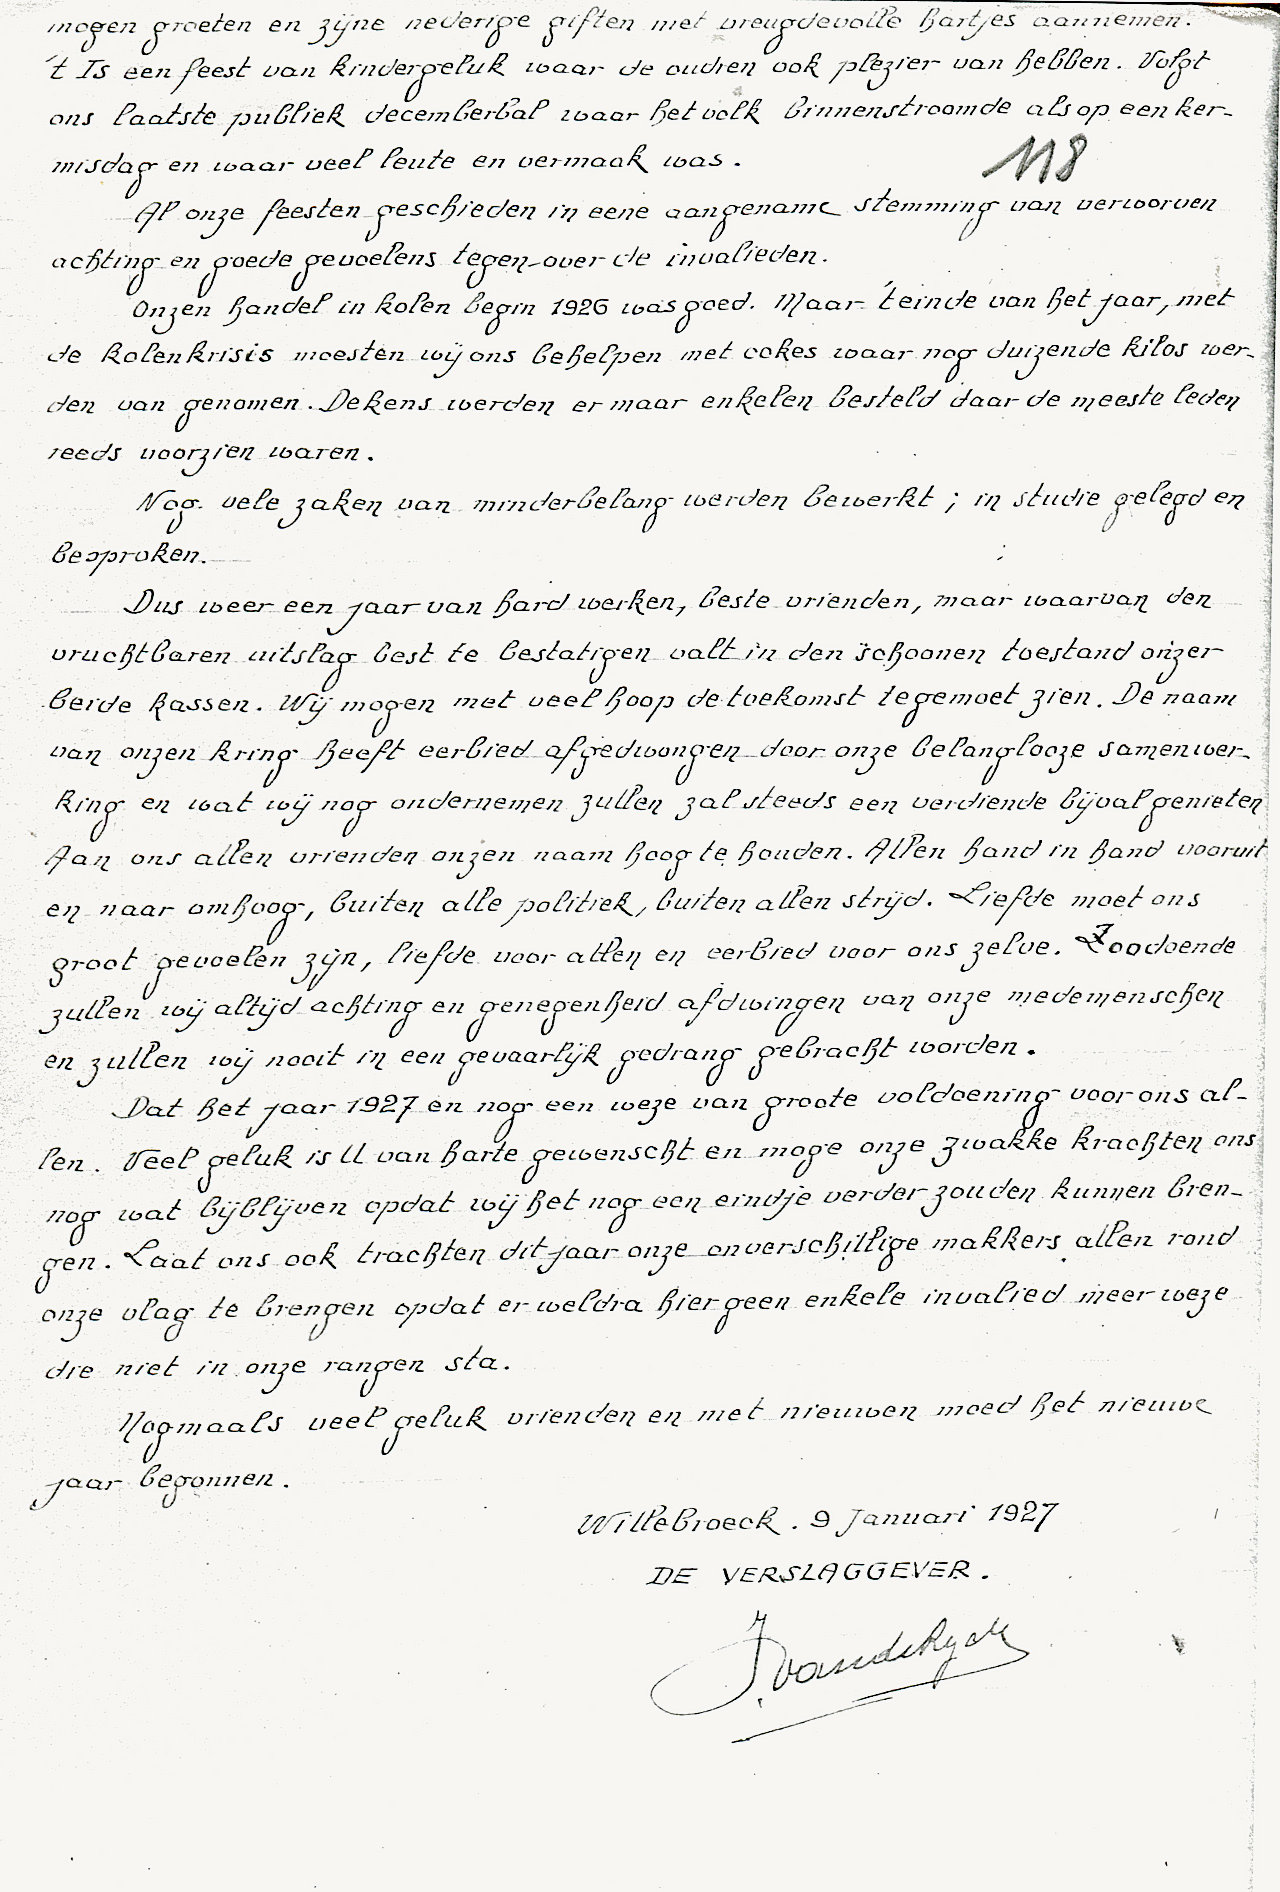 mogen groeten en zijne nederige giften met vreugdevolle hartjes aannemen.
't Is een feest van kindergeluk waar de oudren ook plezier van hebben. Volgt
ons laatste publiek decemberbal waar het volk binnenstroomde als op een ker-
misdag en waar veel leute en vermaak was.
118
Al onze feesten geschieden in eene aangename stemming van verworven
achting en goede gevoelens tegen-over de invalieden.
Onzen handel in kolen begin 1926 was goed. Maar 't einde van het jaar, met
de kolenkrisis moesten wij ons behelpen met cokes waar nog duizende kilos wer-
den van genomen. Dekens werden er maar enkelen besteld daar de meeste leden
reeds voorzien waren.
Nog vele zaken van minderbelang werden bewerkt; in studie gelegd en
besproken.
Dus weer een jaar van hard werken, beste vrienden, maar waarvan den
vruchtbaren uitslag best te bestatigen valt in den schoonen toestand onzer
beide kassen. Wij mogen met veel hoop de toekomst tegemoet zien. De naam
van onzen kring heeft eerbied afgedwongen door onze belanglooze samenwer-
king en wat wij nog ondernemen zullen zal steeds een verdiende bijval genieten
Aan ons allen vrienden onzen naam hoog te houden. Allen hand in hand vooruit
en naar omhoog, buiten alle politiek, buiten allen strijd. Liefde moet ons
groot gevoelen zijn, liefde voor allen en eerbied voor ons zelve. Zoodoende
zullen wij altijd achting en genegenheid afdwingen van onze medemenschen
en zullen wij nooit in een gevaarlijk gedrang gebracht worden.
Dat het jaar 1927 en nog een weze van groote voldoening voor ons al-
len. Veel geluk is U van harte gewenscht en moge onze zwakke krachten ons
nog wat bijblijven opdat wij het nog een eindje verder zouden kunnen bren-
gen. Laat ons ook trachten dit jaar onze onverschillige makkers allen rond
onze vlag te brengen opdat er weldra hier geen enkele invalied meer weze
die niet in onze rangen sta.
Nogmaals veel geluk vrienden en met nieuwen moed het nieuwe
jaar begonnen.
Willebroeck. 9 Januari 1927
DE VERSLAGGEVER.
J. Vanderyck